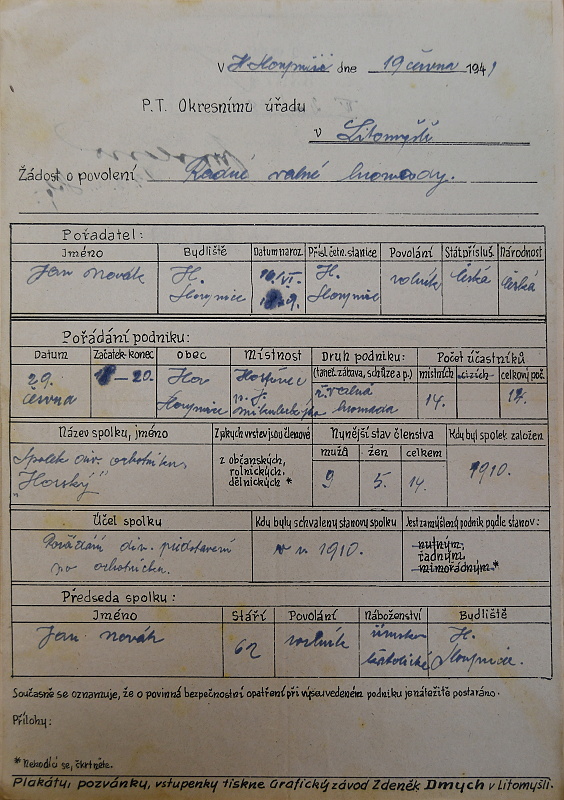 V H Sloupnici dne 19 června 1941
P.T. Okresnímu úřadu
v Litomyšli
Žádost o povolení Řádné valné hromady.
Pořadatel:
Jméno Bydliště Datum naroz. Přísl. četn. stanice Povolání Stát. přísluš. Národnost
Jan Novák H. H. rolník česká česká
Sloupnice Sloupnice
Pořádání podniku:
Datum Začátek-konec Obec Místnost Druh podniku: Počet účastníků
(taneč. zábava, schůze a p.) místních cizích celkový poč.
29. — 20. Hor Hostinec ř. valná 14. 14.
června Sloupnice hromada
Název spolku, jméno Z jakých vrstev jsou členové Nynější stav členstva Kdy byl spolek založen
mužů žen celkem
Spolek div. ochotníků z občanských, 9 5. 14. 1910.
"Horský" rolnických,
dělnických *
Účel spolku Kdy byly schváleny stanovy spolku Jest zamýšlený podnik podle stanov:
Pořádání div. představení v r. 1910. nutným,
po ochotnicku. řádným,
mimořádným.*
Předseda spolku:
Jméno Stáří Povolání Náboženství Bydliště
Jan Novák 62 rolník římsko H.
katolické Sloupnice.
Současně se oznamuje, že o povinná bezpečnostní opatření při výše uvedeném podniku je náležitě postaráno.
Přílohy:
* Nehodící se, škrtněte.
Plakáty, pozvánky, vstupenky tiskne Grafický závod Zdeněk Dmych v Litomyšli.